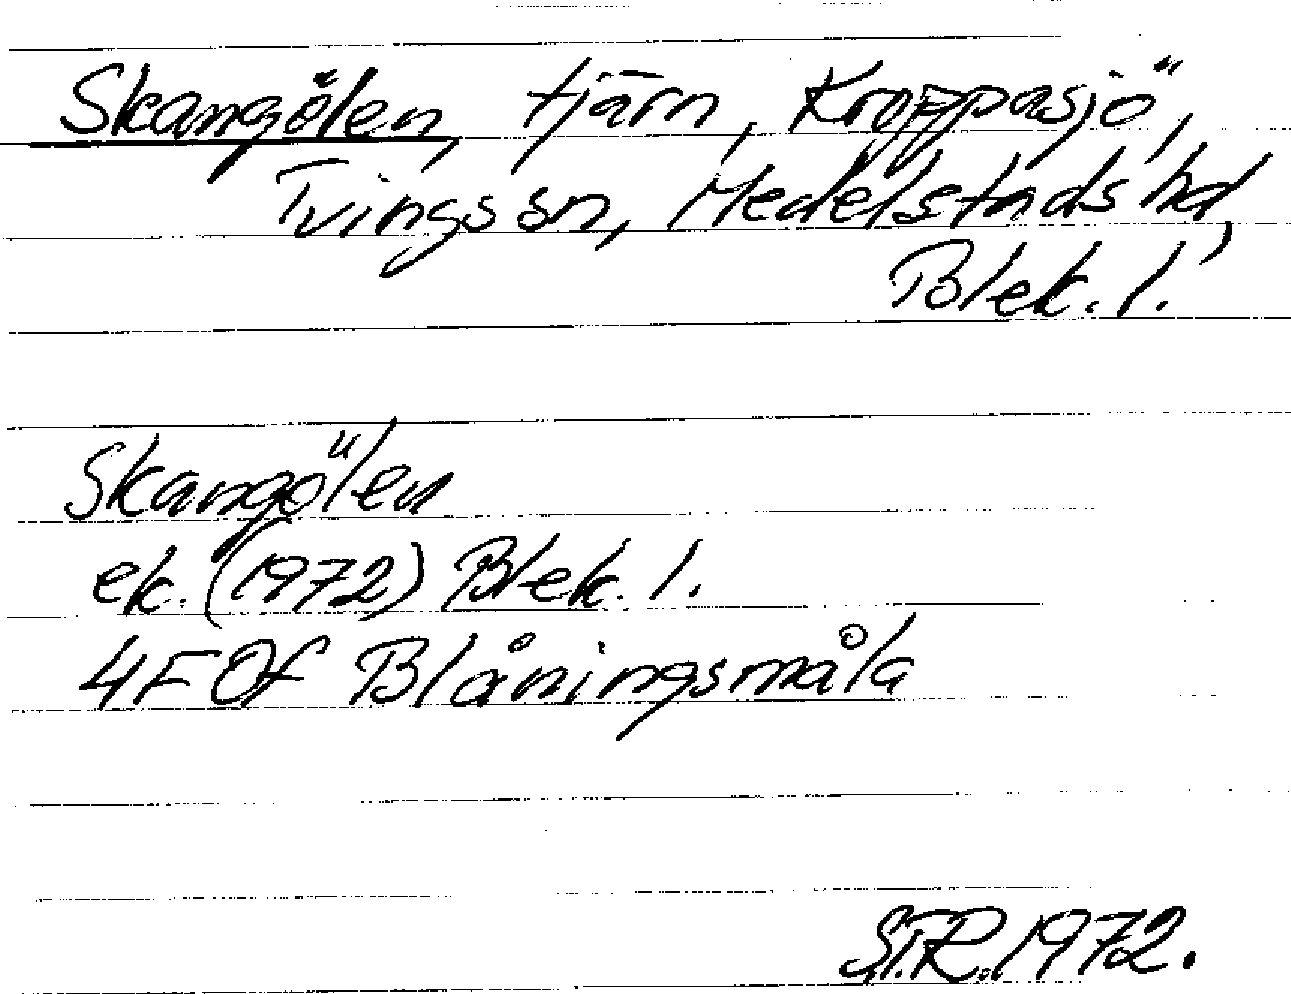 Skangölen, tjärn, Kroppasjö,
Tvings sn, Medelstads hd,
Blek. l.
Skangölen
ek. (1972) Blek. l.
4F 0f Blåningsmåla
S.T.R. 1972.